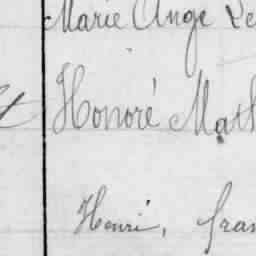 Marie Ange Le
Honoré Math
Henri, fran